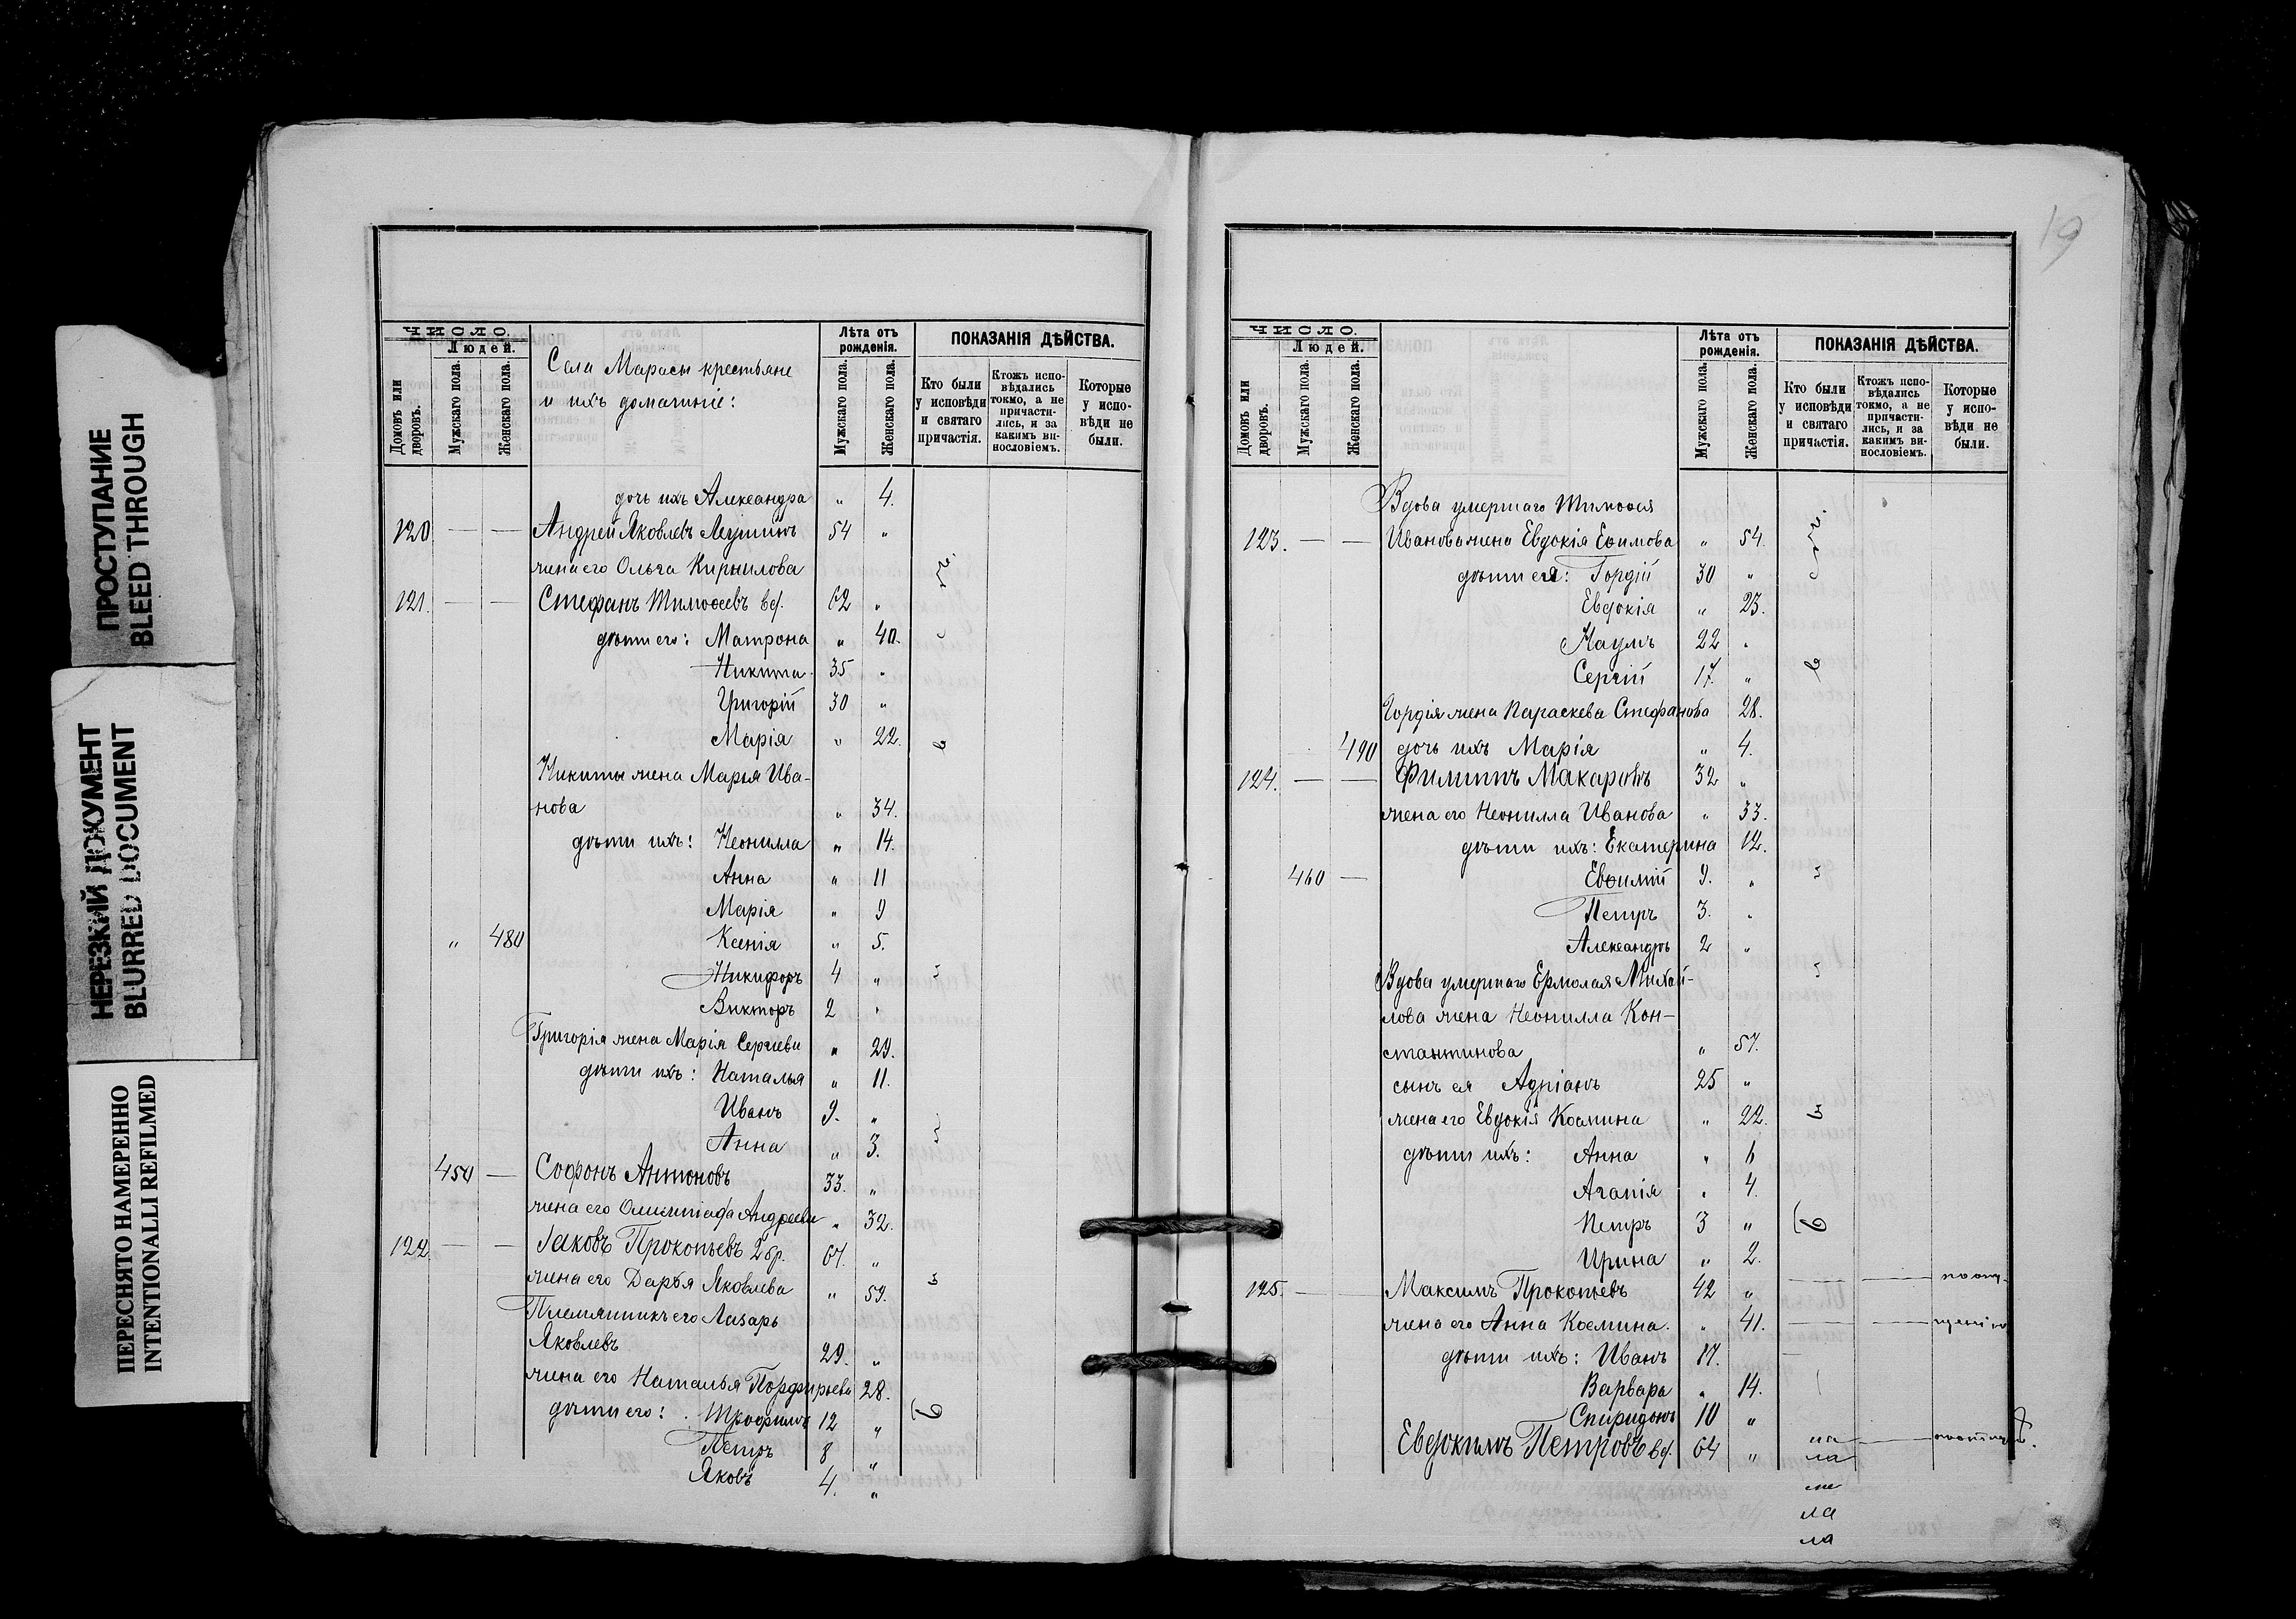 ПРОСТУПАНИЕ
BLEED THROUGH
НЕРЕЗКИЙ ДОКУМЕНТ
BLURRED DOCUMENT
ПЕРЕСНЯТО НАМЕРЕННО
INTENTIONALLI REFILMED
ЧИСЛО.
Людей.
Домовъ или дворовъ.
Мужскаго пола.
Женскаго пола.
Села Марасы крестьяне
и ихъ домашніе:
Лѣта отъ рожденія.
Мужскаго пола.
Женскаго пола.
ПОКАЗАНІЯ ДѢЙСТВА.
Кто были у исповѣди и святаго причастія.
Ктожъ исповѣдались токмо, а не причастились, и за какимъ винословіемъ.
Которые у исповѣди не были.
дочь ихъ Александра " 4.
120 — — Андрей Яковлевъ 54 "
жена его Ольга Кирилова
121. — — Стефанъ Тимоѳеевъ вд. 62 "
дѣти его: Матрона " 40.
Никита 35 "
Григорій 30 "
Марія " 22.
Никиты жена Марья Ива-
нова " 34.
дѣти ихъ: Неонилла " 14.
Анна " 11
Марія " 9
" 480 Ксенія " 5.
Никифоръ 4 "
Викторъ 2 "
Григорія жена Марія Сергіева " 29.
дѣти ихъ: Наталья " 11.
Иванъ 9. "
Анна " 3.
450 — Софонъ Антоновъ 33. "
жена его Олимпіада Андреева " 32.
122. — — Іаковъ Прокопьевъ 2 бр. 67. "
жена его Дарья Яковлева " 59.
Племянникъ его Лазарь
Яковлевъ 29. "
жена его Наталья Порфирьева 28.
дѣти его: Трофимъ 12 "
Петръ 8 "
Яковъ 4. "
19
ЧИСЛО.
Людей.
Домовъ или дворовъ.
Мужскаго пола.
Женскаго пола.
Лѣта отъ рожденія.
Мужскаго пола.
Женскаго пола.
ПОКАЗАНІЯ ДѢЙСТВА.
Кто были у исповѣди и святаго причастія.
Ктожъ исповѣдались токмо, а не причастились, и за какимъ винословіемъ.
Которые у исповѣди не были.
Вдова умершаго Тимоѳея
123. — — Иванова жена Евдокія Еѳимова " 54.
дѣти ея: Гордій 30 "
Евдокія " 23.
Наумъ 22 "
Сергій 17. "
Гордія жена Параскева Стефанова 28.
490 дочь ихъ Марія " 4.
124. — — Филиппъ Макаровъ 32 "
жена его Неонилла Иванова " 33.
дѣти ихъ: Екатерина 12.
460 — Евѳимій 9. "
Петръ 3. "
Александръ 2 "
Вдова умершаго Ермолая Михай-
лова жена Неонилла Кон-
стантинова " 57.
сынъ ея Адріанъ 25 "
жена его Евдокія Космина " 22.
дѣти ихъ: Анна " 6
Агапія " 4.
Петръ 3 "
Ирина " 2.
125. — — Максимъ Прокопьевъ 42 " — —
жена его Анна Космина. " 41. — —
дѣти ихъ: Иванъ 17.
Варвара " 14.
Спиридонъ 10 "
Евдокимъ Петровъ вд. 64 "